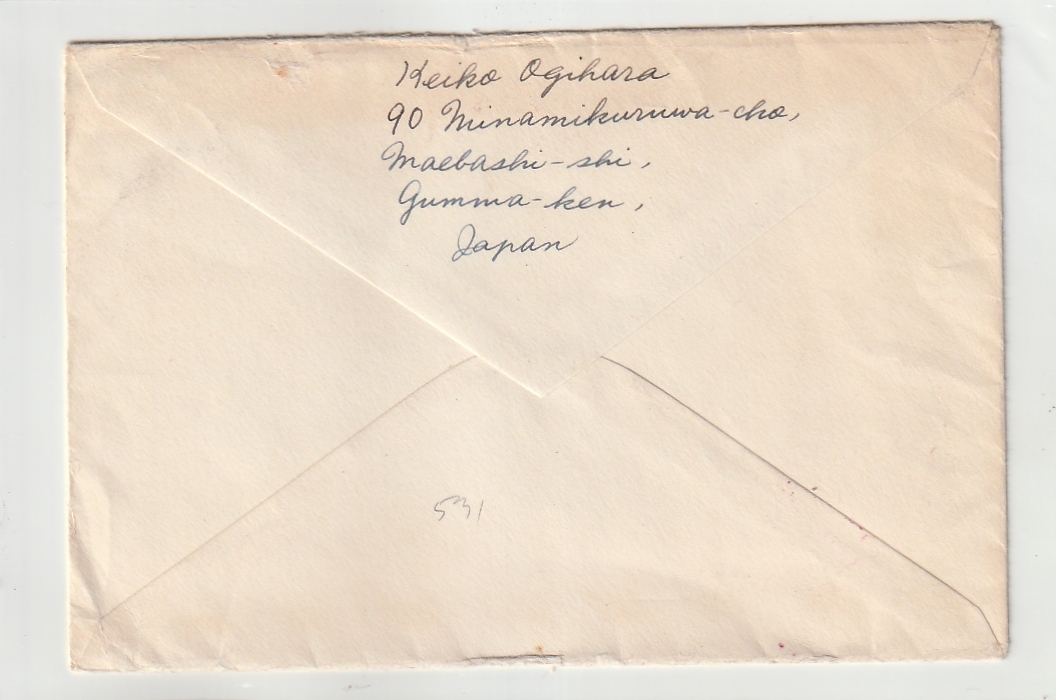 Keiko Ogihara
90 Minamikuruwa-cho,
Maebashi-shi,
Gumma-ken,
Japan
531